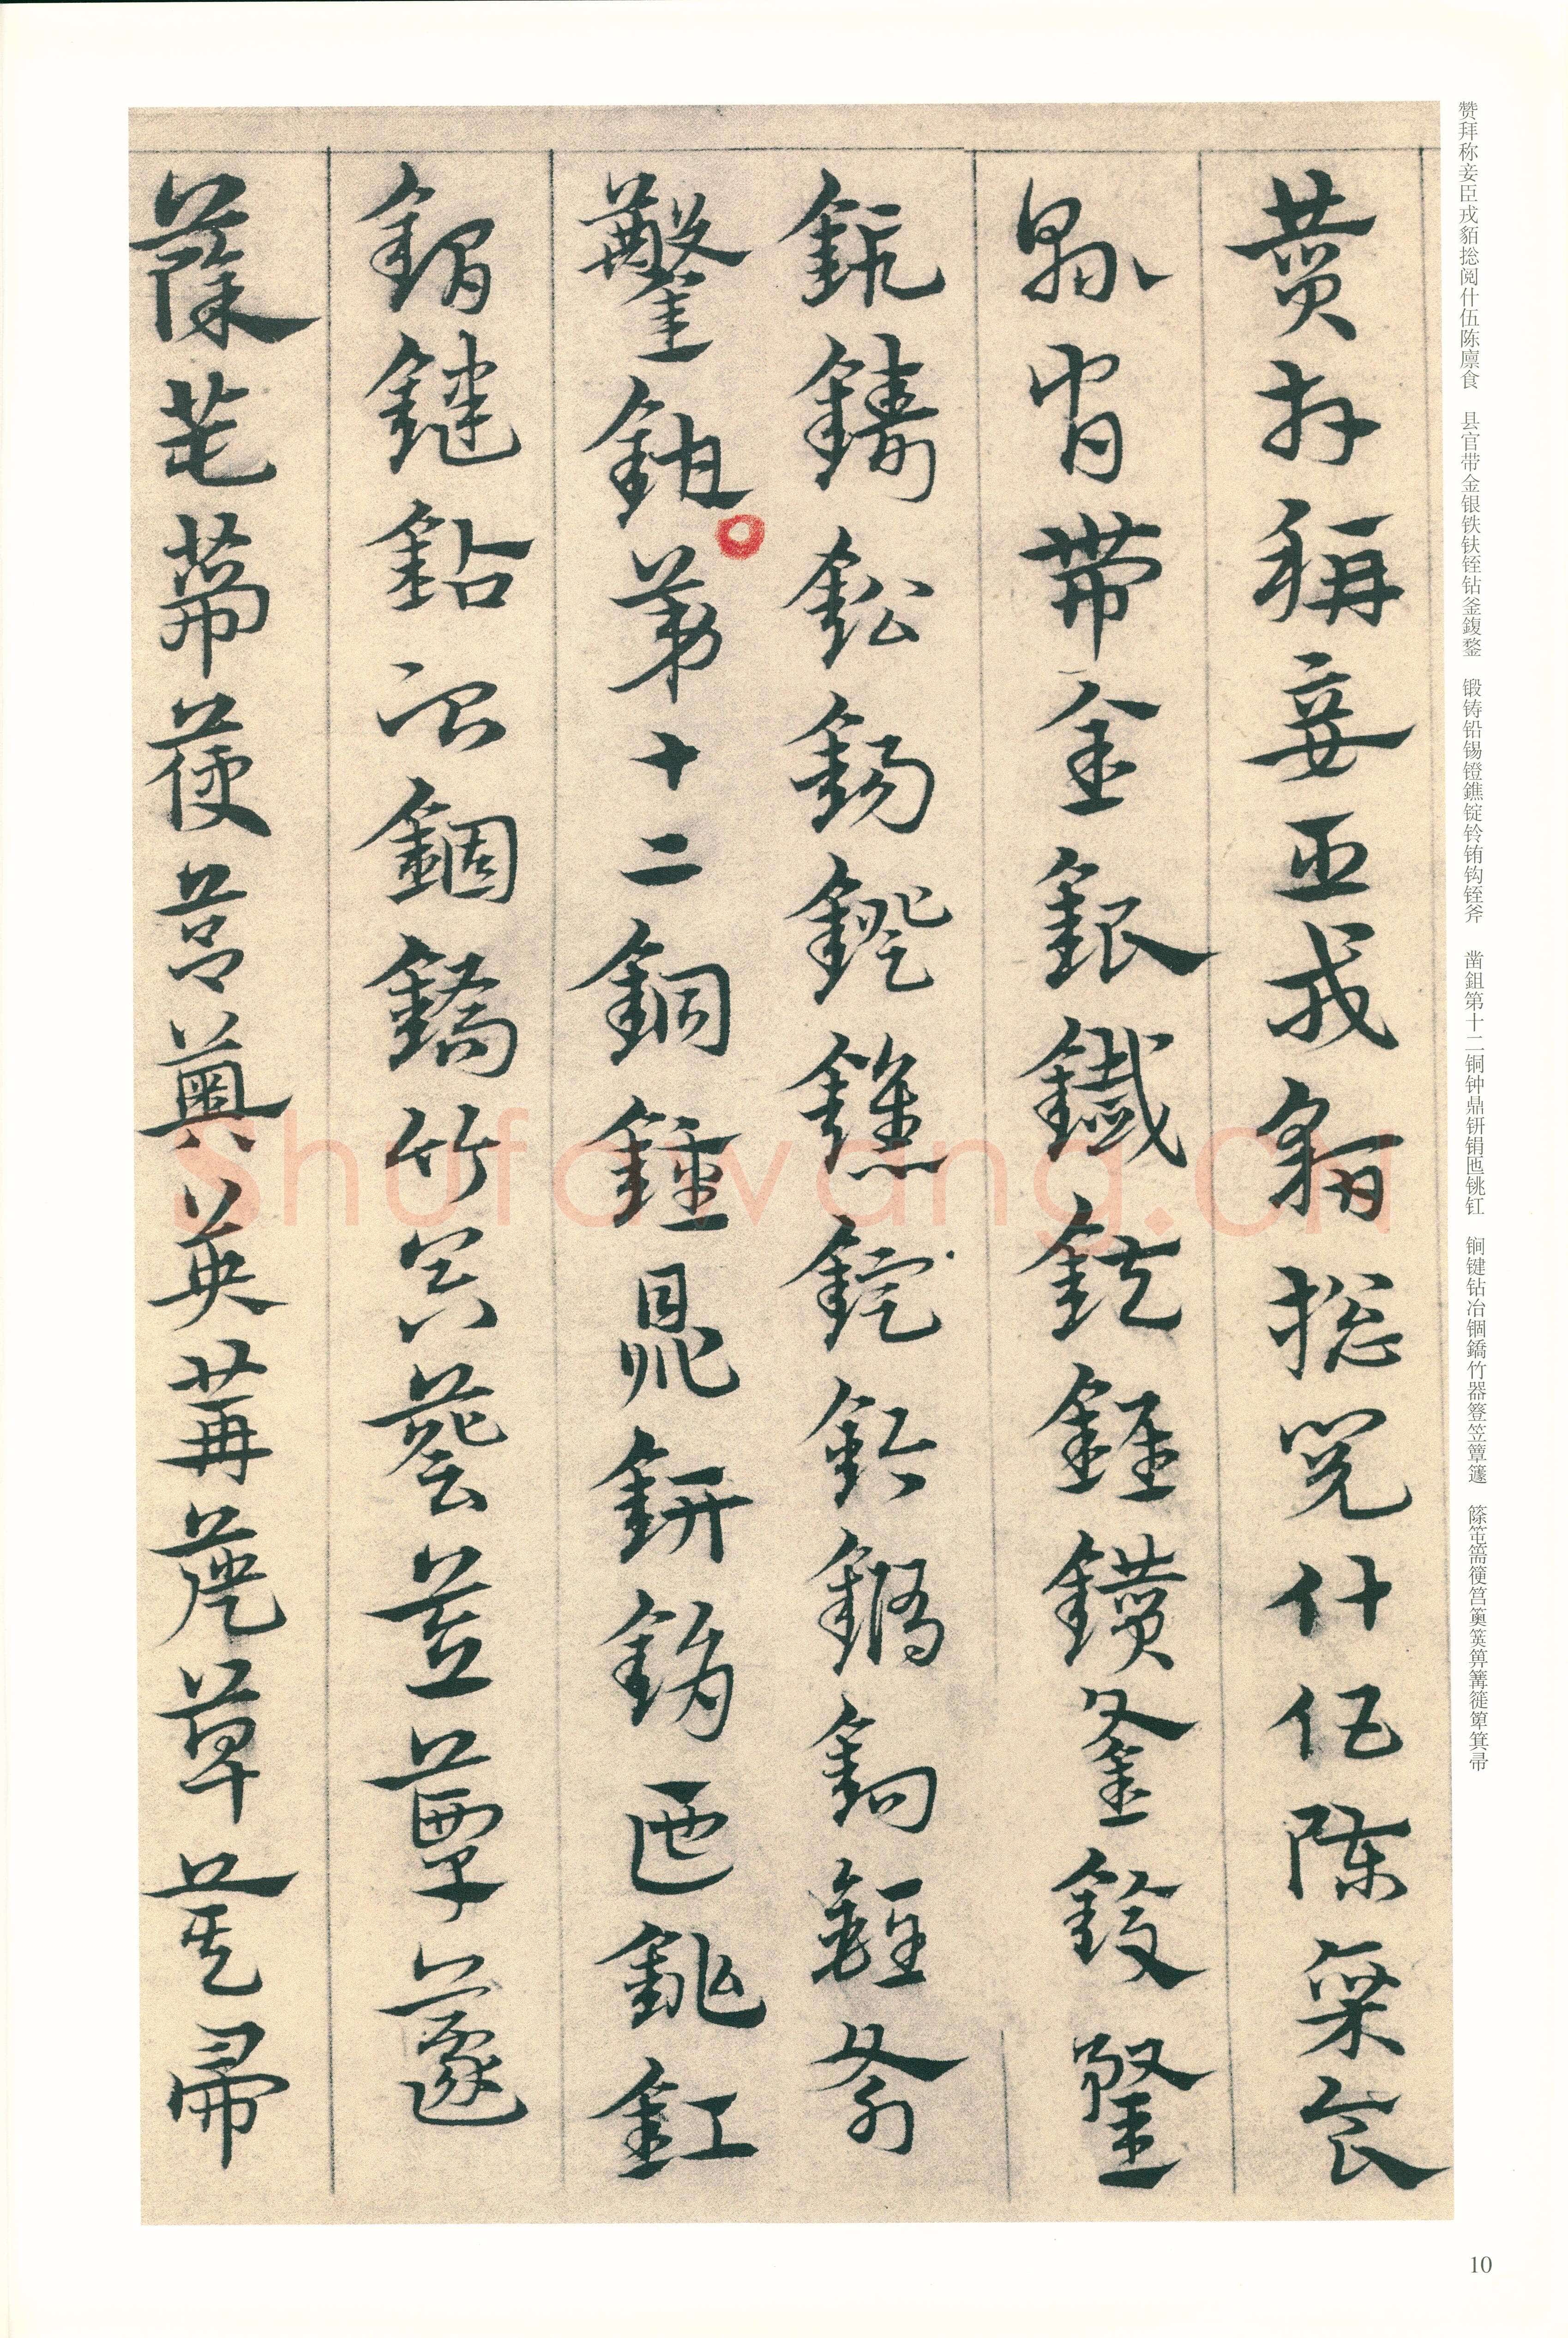 赞拜称妾臣戎貊捴阅什伍陈廪食　县官带金银铁鈇铚钻釜鍑鍪　锻铸铅锡镫鐎锭铃铕钩铚斧　凿鉏第十二铜钟鼎钘鋗匜铫釭　锏键钻冶锢鐈竹器簦笠簟籧　篨笹篅筵筥薁筴箅篝簁箪箕帚
賛拜稱妾臣戎貊捴閱什伍陳稟食
縣官帶金銀鐵鈇銍鑽釜鍑鍪
鈑鑄鉛錫鐙鐎錠鈴鐍鉤銍斧
鑿鉏第十二銅鍾鼎鈃鋗匜銚釭
鐗鍵鉆冶錮鐈竹器簦笠簟籧
篨笹篅筵筥薁筴箅篝簁箪箕帚
shufawang.cn
10